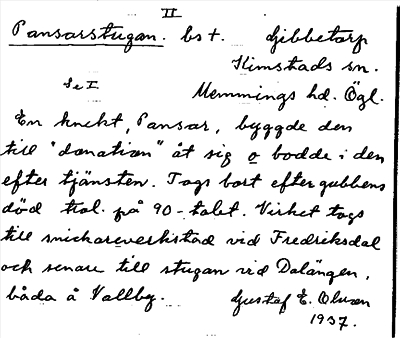 II
Pansarstugan. bs t. Gibbetorp
Kimstads sn.
Se I
Memmings hd. Ögl.
En knekt, Pansar, byggde den
till "donation" åt sig o bodde i den
efter tjänsten. Togs bort efter gubbens
död trol. på 90-talet. Virket togs
till snickareverkstad vid Fredriksdal
och senare till stugan vid Dalängen,
båda å Vallby. Gustaf E. Olsson
1937.